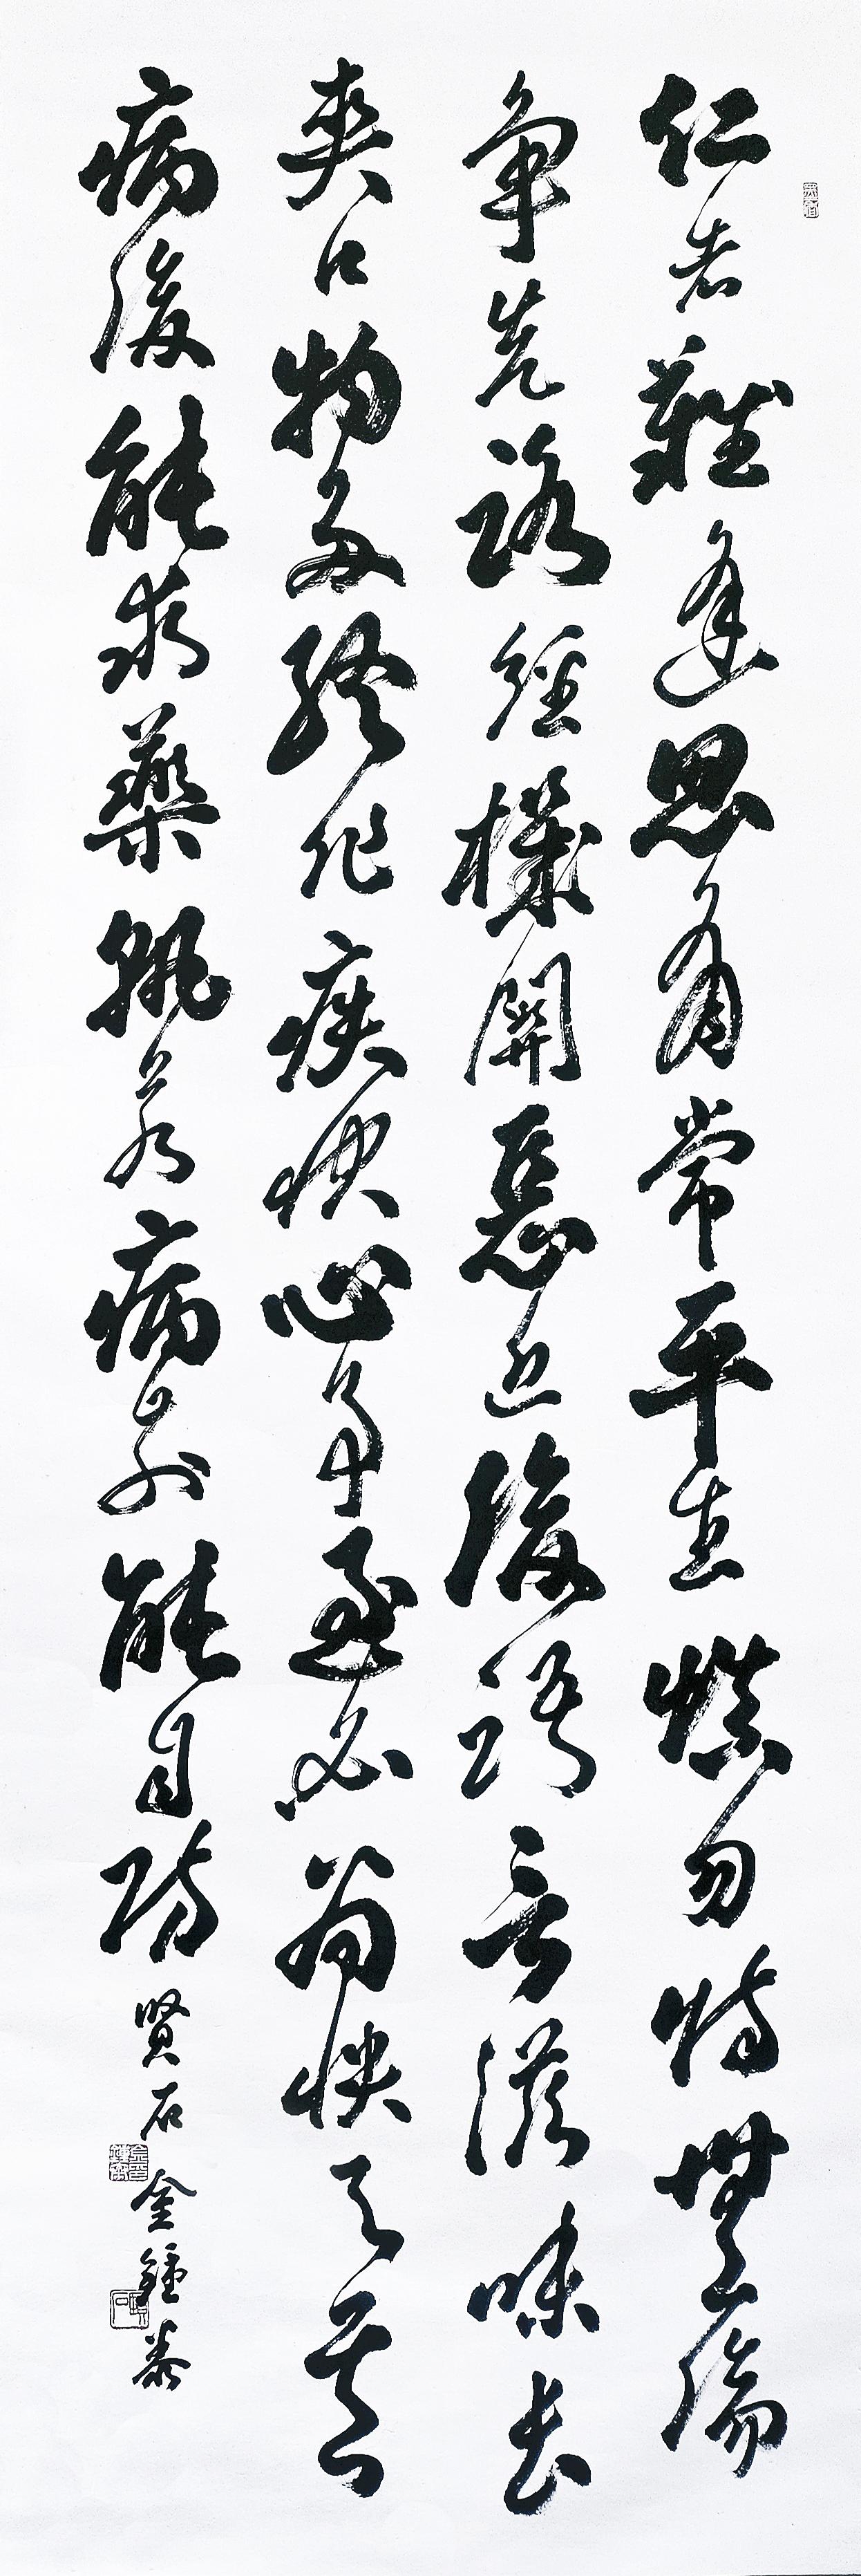 仁者難逢思有常平生慎勿恃無傷
爭先路徑機關惡近後語言滋味長
爽口物多終作疾快心事過必為殃與其
病後能求藥孰若病前能自防 賢石 金鍾泰